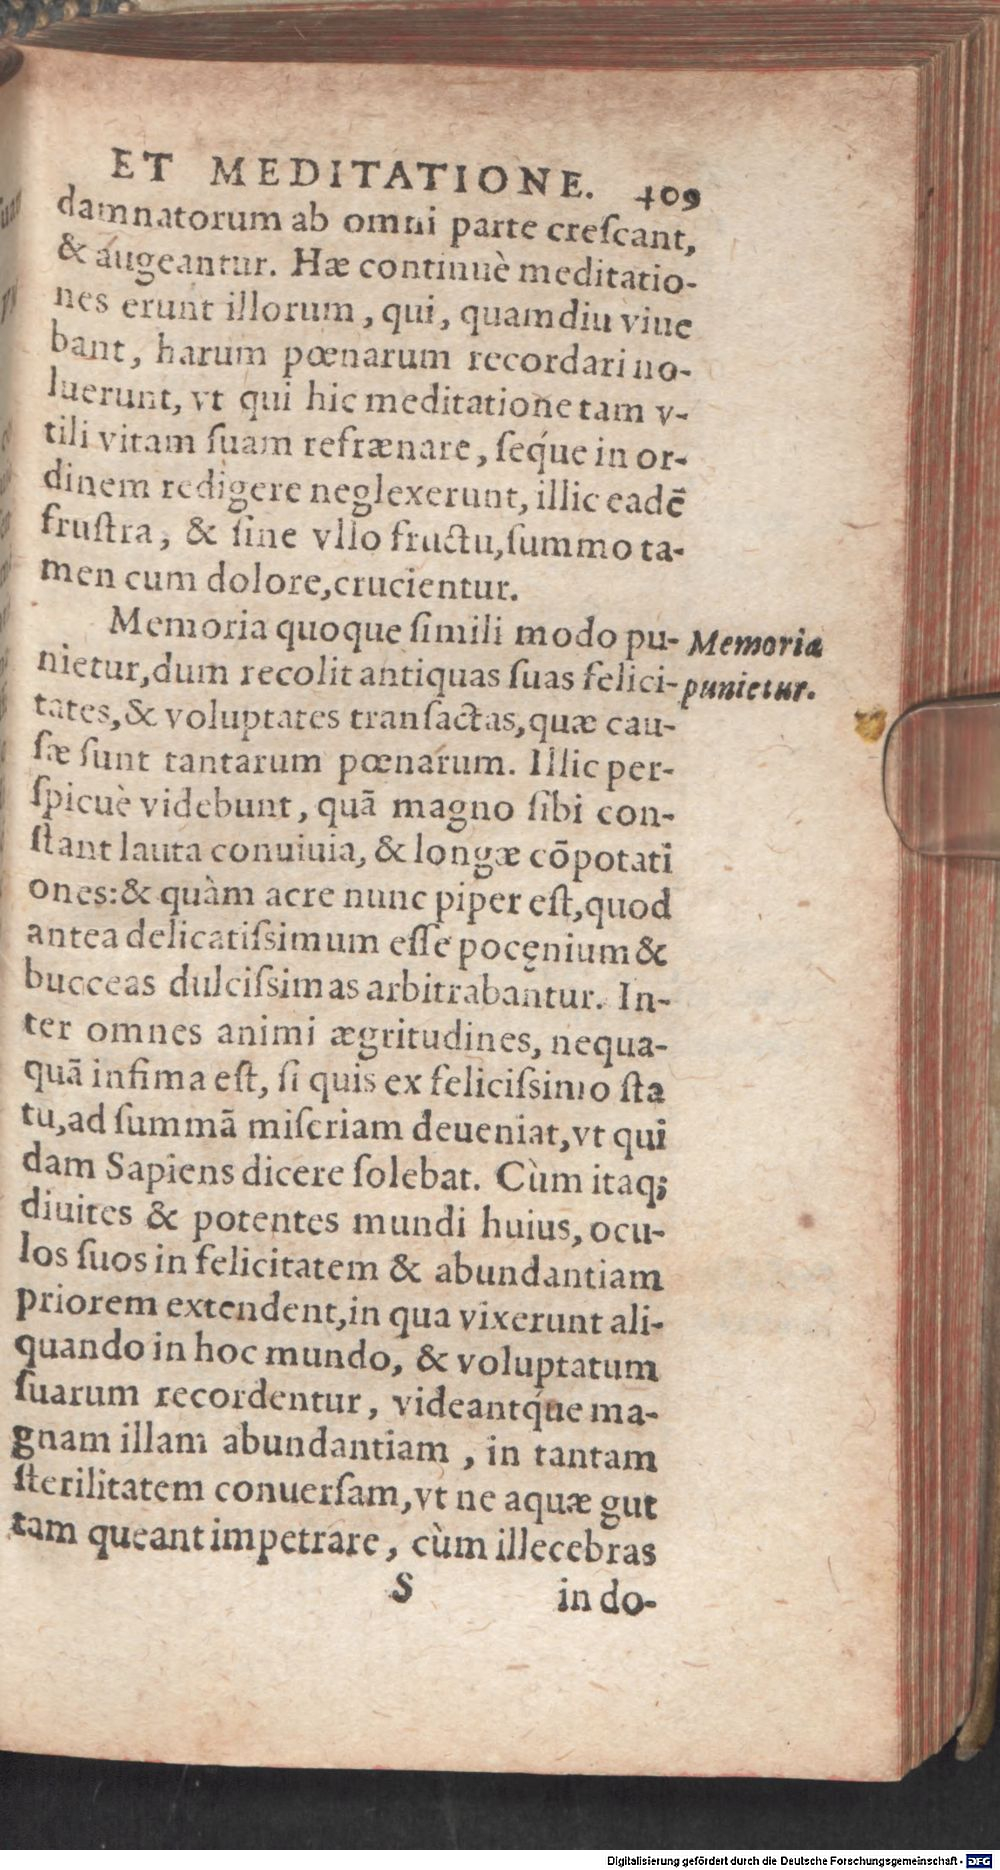 ET MEDITATIONE. 409
damnatorum ab omni parte creſcant,
& augeantur. Hæ continuè meditatio-
nes erunt illorum, qui, quamdiu viue
bant, harum pœnarum recordari no-
luerunt, vt qui hic meditatione tam v-
tili vitam ſuam refrænare, ſeq́ue in or-
dinem redigere neglexerunt, illic eadē
fruſtra, & ſine vllo fructu, ſummo ta-
men cum dolore, crucientur.
Memoria quoque ſimili modo pu-
nietur, dum recolit antiquas ſuas felici-
tates, & voluptates tranſactas, quæ cau-
ſæ ſunt tantarum pœnarum. Illic per-
ſpicuè videbunt, quā magno ſibi con-
ſtant lauta conuiuia, & longæ cōpotati
ones: & quàm acre nunc piper eſt, quod
antea delicatiſsimum eſſe pocęnium &
bucceas dulciſsimas arbitrabantur. In-
ter omnes animi ægritudines, nequa-
quā infima eſt, ſi quis ex feliciſsimo ſta
tu, ad ſummā miſeriam deueniat, vt qui
dam Sapiens dicere ſolebat. Cùm itaq;
diuites & potentes mundi huius, ocu-
los ſuos in felicitatem & abundantiam
priorem extendent, in qua vixerunt ali-
quando in hoc mundo, & voluptatum
ſuarum recordentur, videantq́ue ma-
gnam illam abundantiam, in tantam
ſterilitatem conuerſam, vt ne aquæ gut
tam queant impetrare, cùm illecebras
S in do-
Memoria
punietur.
Digitalisierung gefördert durch die Deutsche Forschungsgemeinschaft - DFG